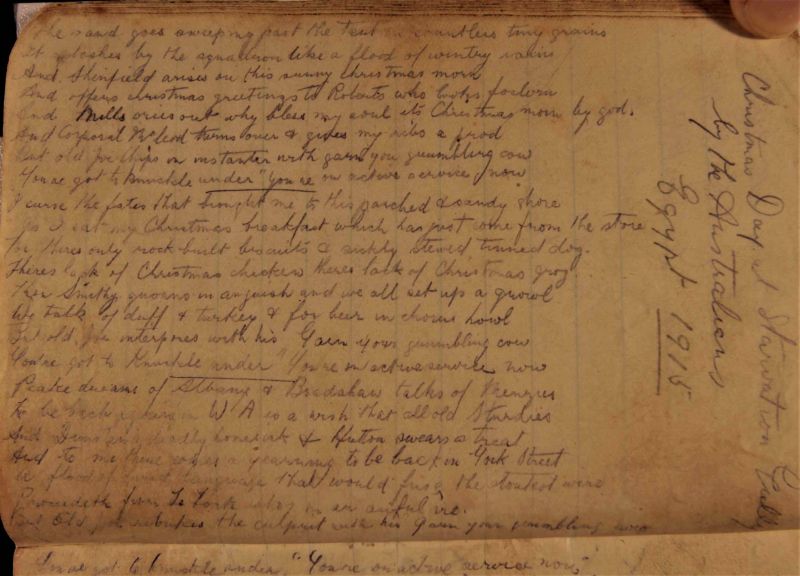 The sand goes sweeping past the tent in countless tiny grains
It splashes by the squadron like a flood of wintry rains
And Shenfield arises on this sunny Christmas morn
And offers christmas greetings to Roberts who looks forlorn
And Mills cries out why bless my soul its Christmas morn by god.
And Corporal McLeod turns over & gives my ribs a prod
But old Joe chips in instanter with garn you grumbling cow
You've got to knuckle under "You're on active service now
I curse the fates that brought me to this parched & sandy shore
As I eat my Christmas breakfast which has just come from the store
For theres only rock-built biscuits & sickly stewed tinned dog.
Theres lack of Christmas chicken theres lack of Christmas grog
Then Smithy groans in anguish and we all set up a growl
We talk of duff & turkey & for beer in chorus howl
But old Joe interposes with his Garn your grumbling cow
You've got to Knuckle under "You're on active service now
Peake dreams of Albany & Bradshaw talks of Menzies
To be back again in W A is a wish that old Studies
And deadly homesick & Hutton swears a treat
And to me there comes a yearning to be back in York Street
A flood of language that would the stoutest wire
Proceedeth from in an awful ire.
But Old Joe rebukes the culprit with his Garn your grumbling cow
You've got to knuckle under, "You're on active service now"
Christmas Day at Starvation Gully
by the Australians
Egypt 1915